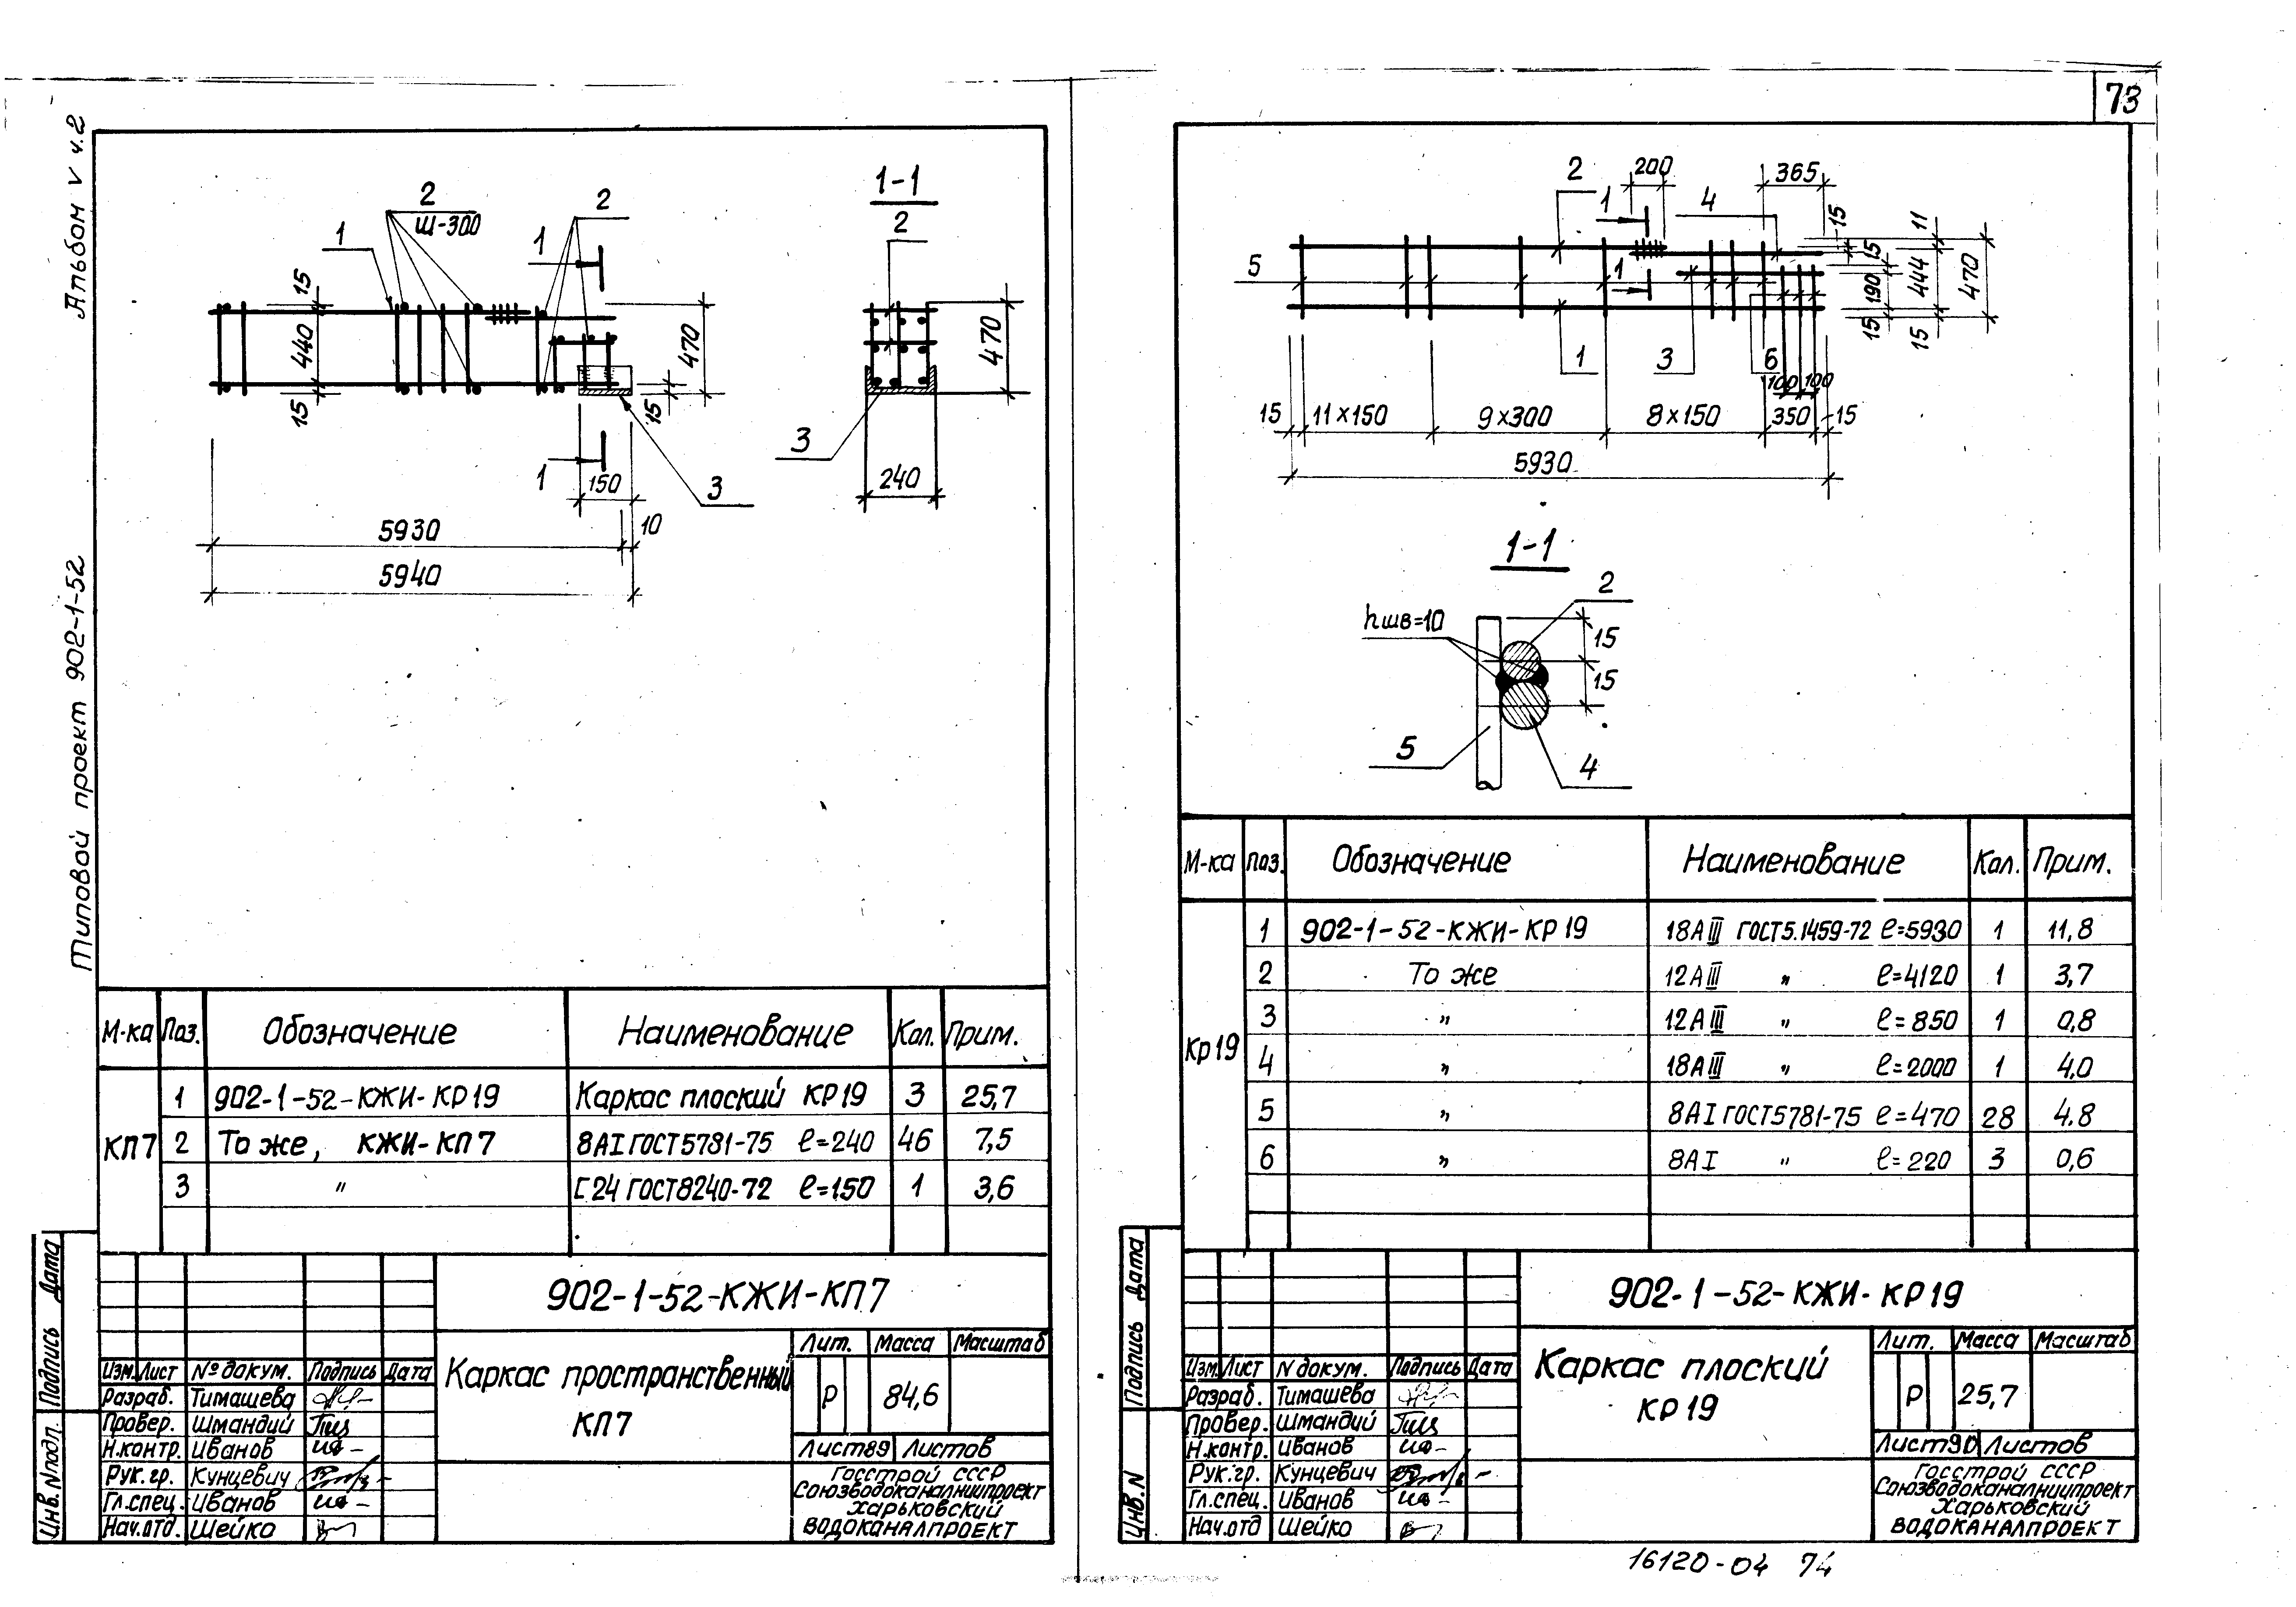 73
Альбом V ч.2
Типовой проект 902-1-52
1-1
2
Ш-300
2
1
1
2
15
440
15
470
15
470
3
3
1
150
240
10
5930
5940
М-ка Поз. Обозначение Наименование Кол. Прим.
КП7
1 902-1-52-КЖИ-КР19 Каркас плоский КР19 3 25,7
2 То же, КЖИ-КП7 8АI ГОСТ5781-75 ℓ=240 46 7,5
3 " [24 ГОСТ8240-72 ℓ=150 1 3,6
902-1-52-КЖИ-КП7
Каркас пространственный
КП7
Лит. Масса Масштаб
Р 84,6
Лист89 Листов
Госстрой СССР
Союзводоканалниипроект
Харьковский
Водоканалпроект
Изм. Лист № докум. Подпись Дата
Разраб. Тимашева
Провер. Шмандий
Н.контр. Иванов
Рук.гр. Кунцевич
Гл.спец. Иванов
Нач.отд. Шейко
Подпись Дата
Инв.N подл.
2
200
4
365
1
15
11
5
1
15
190
15
444
15
470
1
3
6
100 100
15 11×150 9×300 8×150 350 15
5930
1-1
2
hшв=10
15
15
5
4
М-ка Поз. Обозначение Наименование Кол. Прим.
Кр19
1 902-1-52-КЖИ-КР19 18АIII ГОСТ5.1459-72 ℓ=5930 1 11,8
2 То же 12АIII " ℓ=4120 1 3,7
3 " 12АIII " ℓ=850 1 0,8
4 " 18АIII " ℓ=2000 1 4,0
5 " 8АI ГОСТ5781-75 ℓ=470 28 4.8
6 " 8АI " ℓ=220 3 0,6
902-1-52-КЖИ-КР19
Каркас плоский
КР19
Лит. Масса Масштаб
Р 25,7
Лист90 Листов
Госстрой СССР
Союзводоканалниипроект
Харьковский
Водоканалпроект
Изм. Лист N докум. Подпись Дата
Разраб. Тимашева
Провер. Шмандий
Н.контр. Иванов
Рук.гр. Кунцевич
Гл.спец. Иванов
Нач.отд Шейко
Подпись Дата
Инв.N
16120-04 74